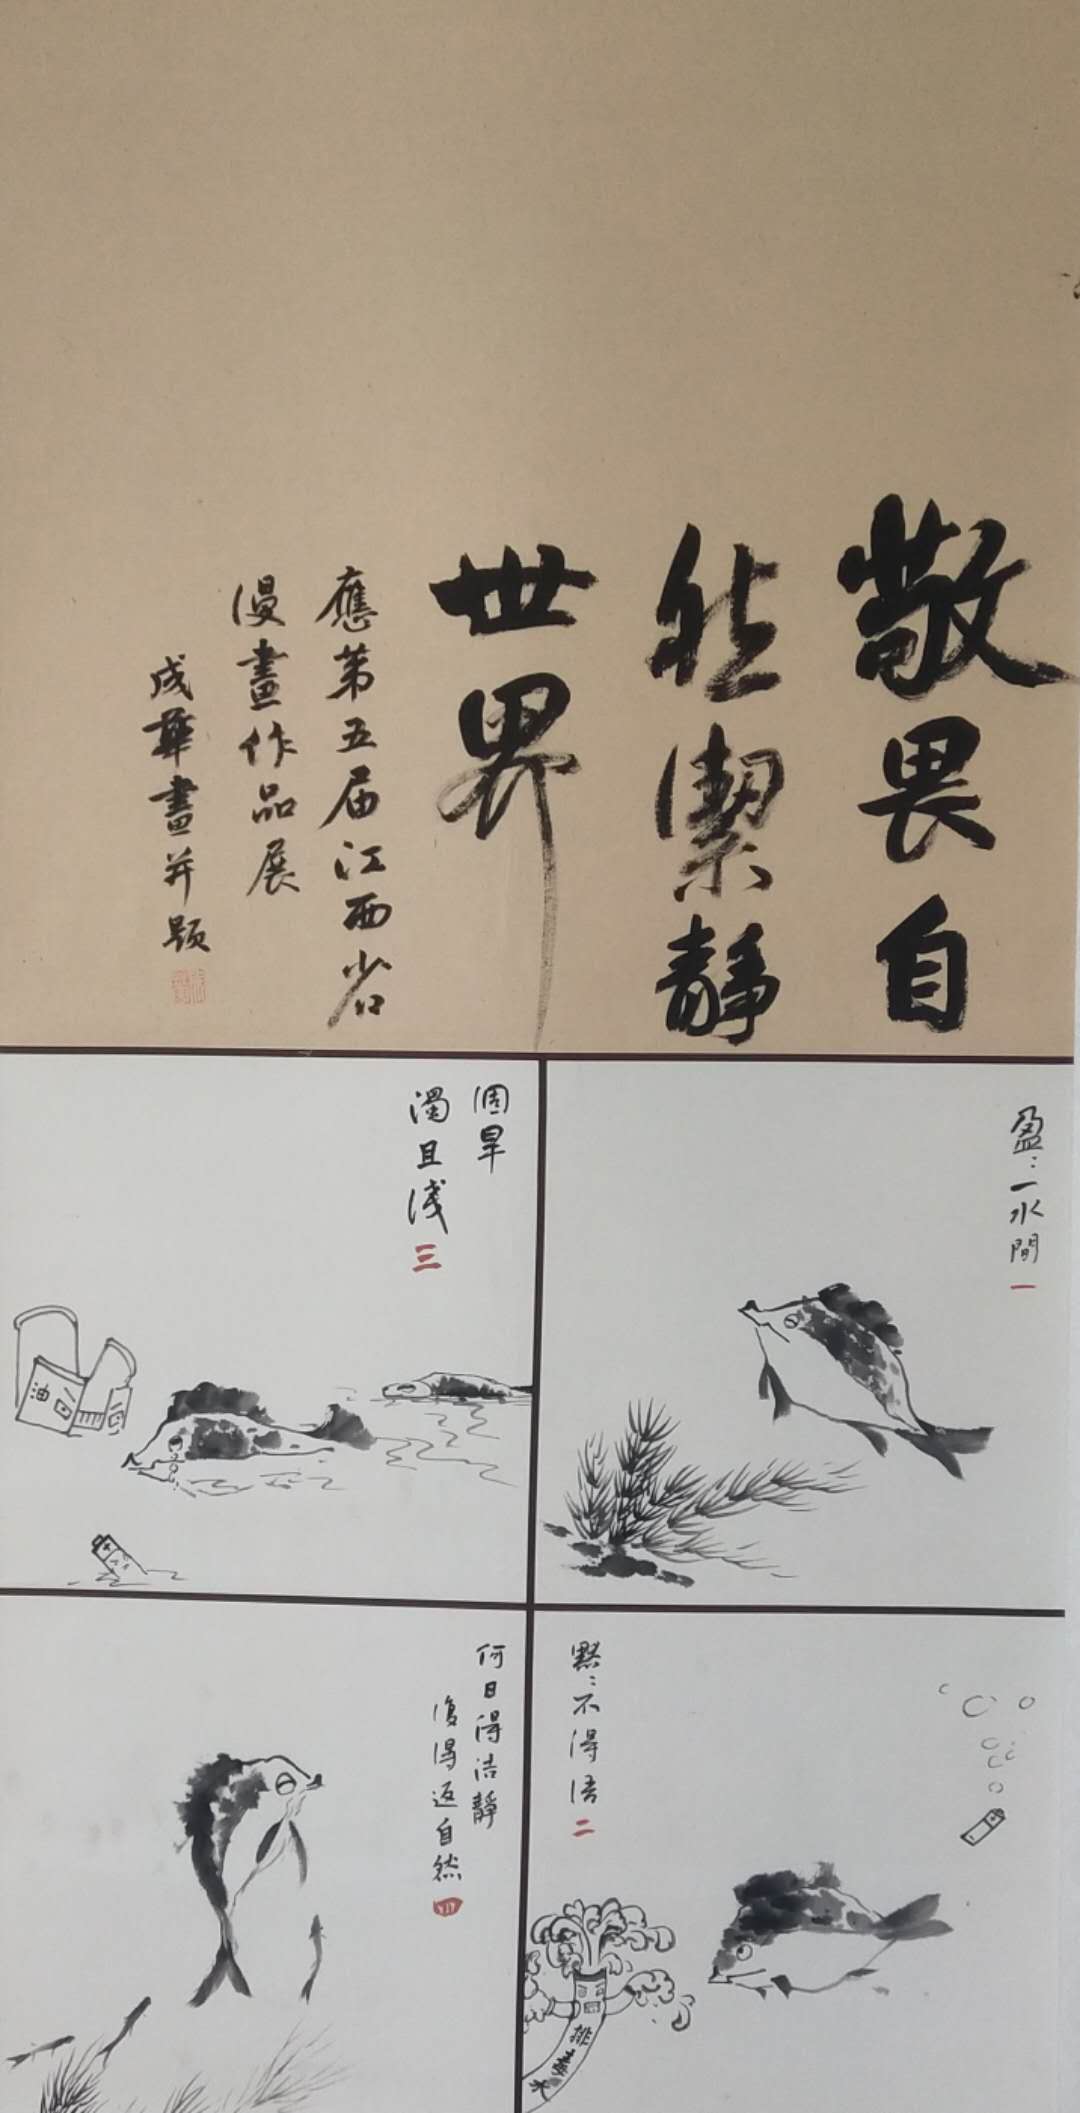 敬畏自
然潔靜
世界
應第五届江西省
漫畫作品展
成華畫并題
盈:一水間 一
默:不得语 二
排毒水
涸旱
濁且淺 三
油
何日得洁靜
復得返自然 四